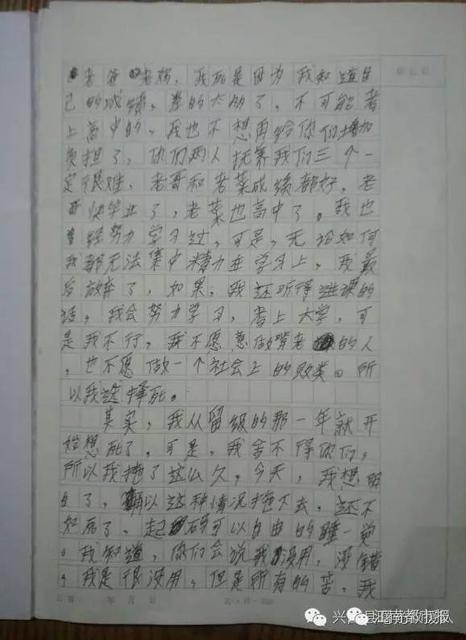 老爸老妈，我死是因为我知道自
己的成绩，差的太多了，不可能考
上高中的，我也不想再给你们增加
负担了，你们两人抚养我们三个一
定很难，老哥和老某成绩都好，老
快毕业了，老某也高中了。我也
经努力学习过，可是，无论如何
我都无法集中精力在学习上，我最
后放弃了，如果，我还听得进课的
话，我会努力学习，考上大学，可
是我不行，我不愿意做啃老的人
，也不愿做一个社会上的败类。所
以我选择死。
其实，我从留级的那一年就开
始想死了，可是，我舍不得你们，
所以我拖了这么久，今天，我想明
白了，以这种情况拖下去，还不
如死了，起码可以自由的睡一觉
。我知道，你们会说我没用，没错
，我是很没用，但是所有的苦，我
年 月 日